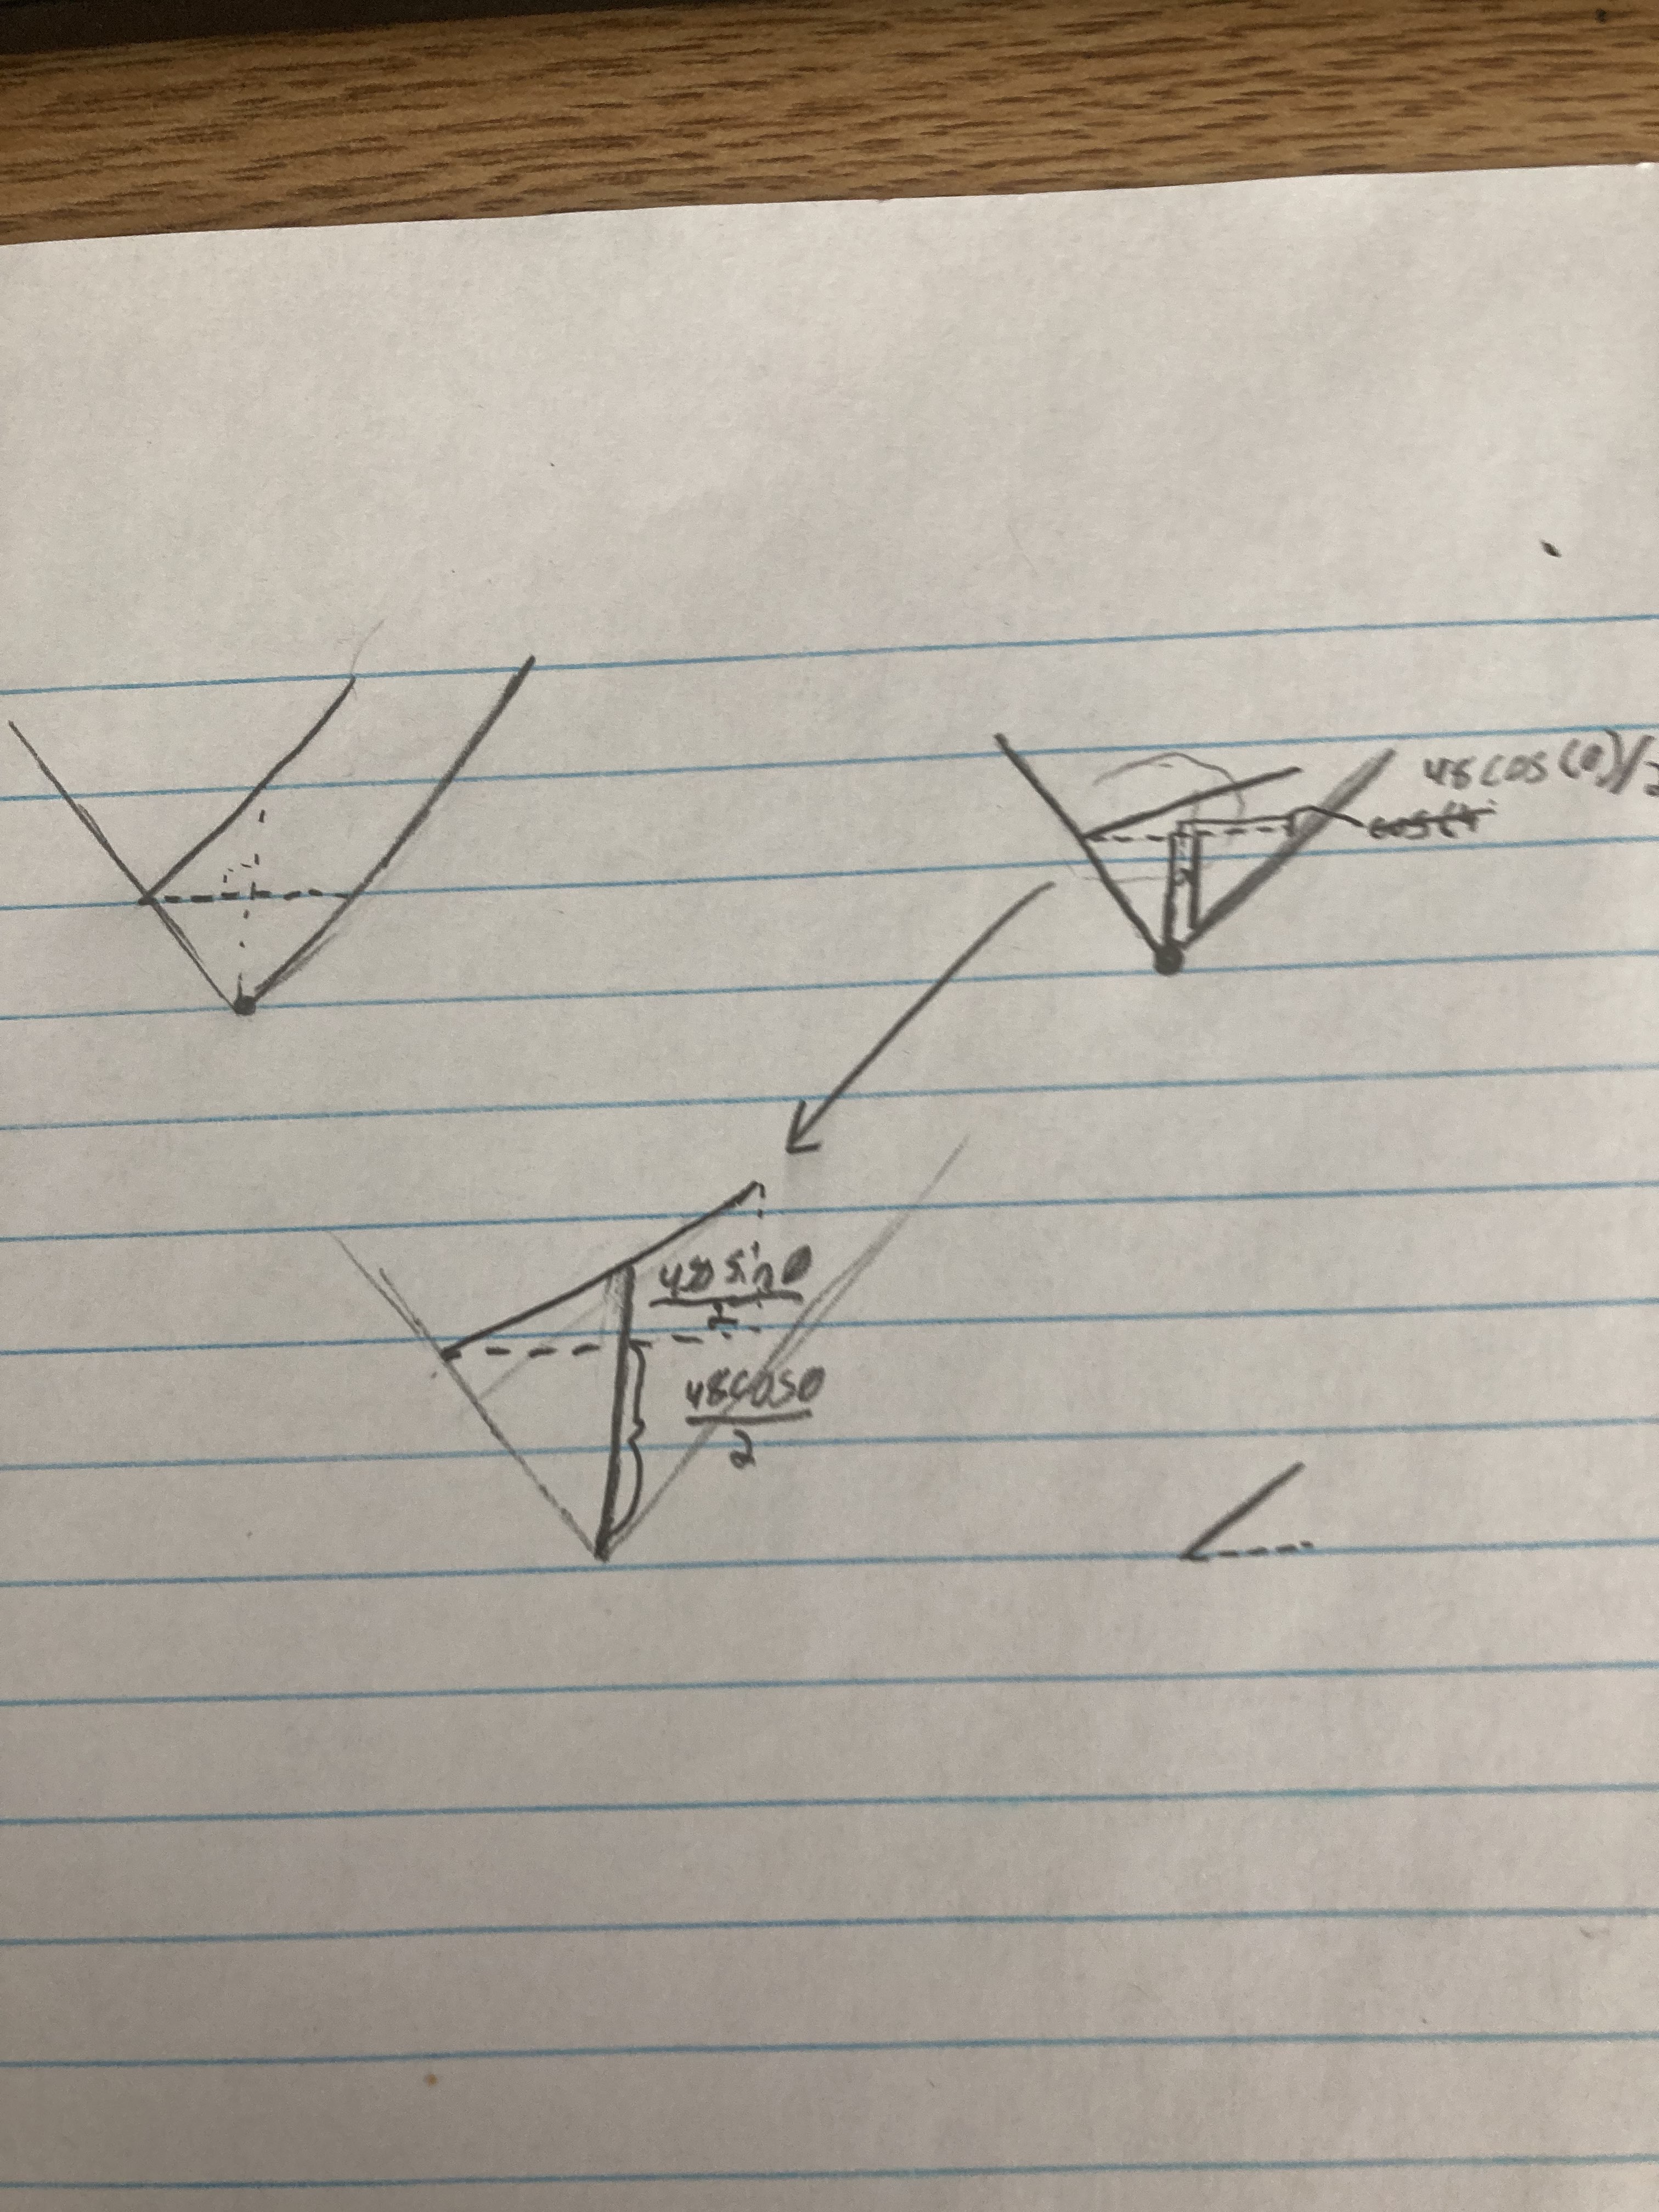 48cos(θ)/2
48 sinθ
2
48cosθ
2